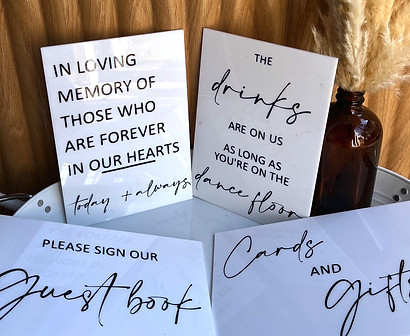 IN LOVING
MEMORY OF
THOSE WHO
ARE FOREVER
IN OUR HEARTS
today + always
THE
drinks
ARE ON US
AS LONG AS
YOU'RE ON THE
dance floor
PLEASE SIGN OUR
Guest book
Cards
AND
Gifts